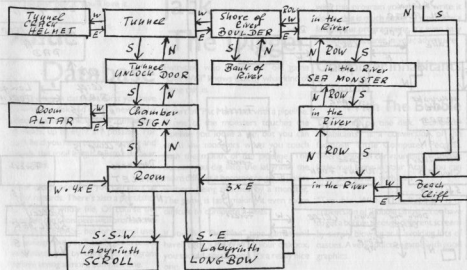 Tunnel
CLACK
HELMET
W
E
Tunnel
W
E
Shore of
River
BOULDER
ROW
W
E
in the
River
N
S
S
N
S
N
N
ROW
S
Tunnel
UNLOCK DOOR
Bank of
River
in the River
SEA MONSTER
S
N
N
ROW
S
Room
ALTAR
W
E
Chamber
SIGN
in the
River
S
N
N
ROW
S
Room
in the River
W
E
Beach
Cliff
W · 4x E
3 x E
S · S · W
S · E
Labyrinth
SCROLL
Labyrinth
LONG BOW